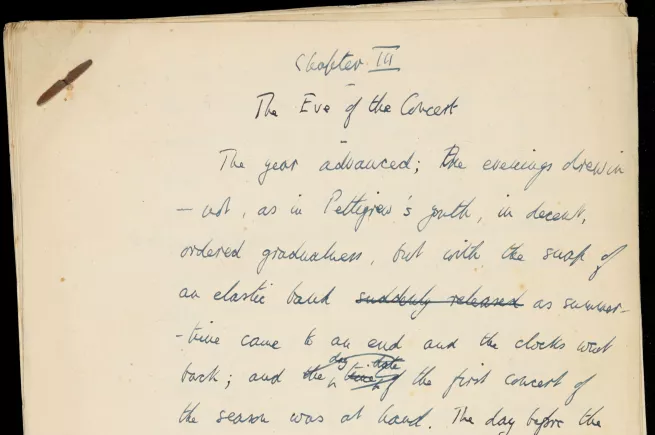 Chapter III
The Eve of the Concert
The year advanced; the evenings drew in
– not, as in Pettigrew's youth, in decent,
ordered gradualness, but with the snap of
an elastic band suddenly released as summer-
-time came to an end and the clocks went
day date
back; and the time of the first concert of
the season was at hand. The day before the